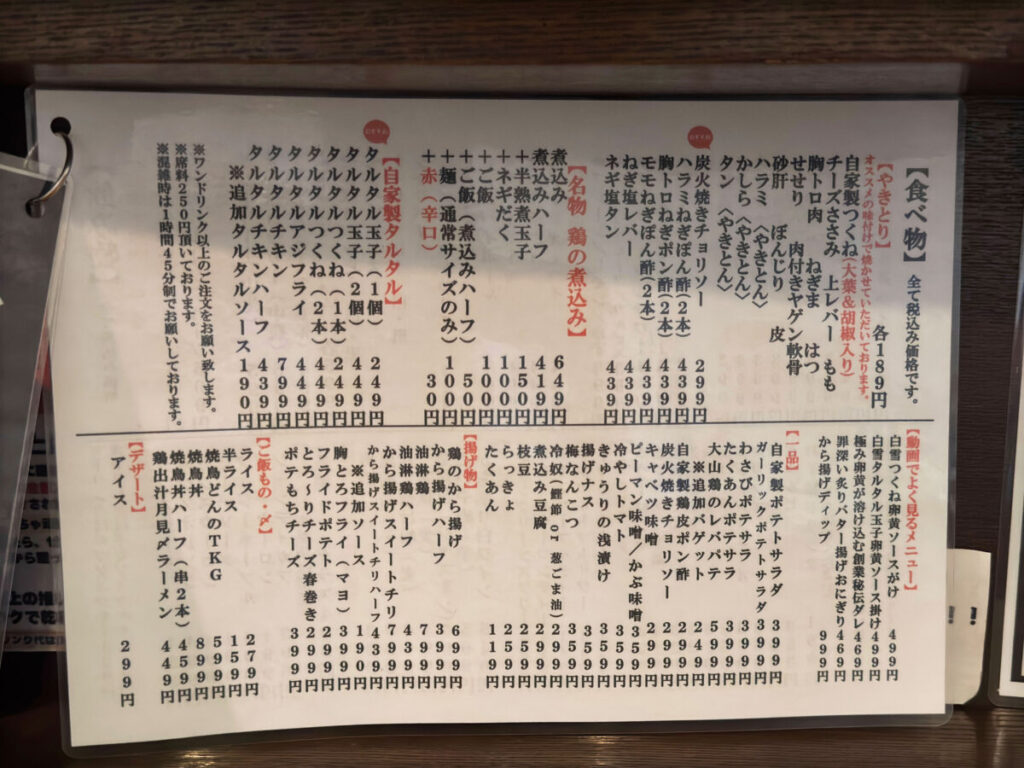 【食べ物】 全て税込み価格です。
【やきとり】 各189円
オススメの味付けで焼かせていただいております。
自家製つくね(大葉&胡椒入り)
チーズささみ 上レバー もも
胸トロ肉 ねぎま はつ
せせり 肉付きヤゲン軟骨
砂肝 ぼんじり 皮
ハラミ〈やきとん〉
かしら〈やきとん〉
タン〈やきとん〉
炭火焼きチョリソー 299円
ハラミねぎぽん酢(2本) 439円
胸トロねぎポン酢(2本) 439円
モモねぎぽん酢(2本) 439円
ねぎ塩レバー 439円
ネギ塩タン 439円
【名物 鶏の煮込み】
煮込み 649円
煮込みハーフ 419円
+半熟煮玉子 150円
+ネギだく 100円
+ご飯 100円
+ご飯(煮込みハーフ) 50円
+麺(通常サイズのみ) 100円
+赤(辛口) 30円
【自家製タルタル】
タルタル玉子(1個) 249円
タルタル玉子(2個) 449円
タルタルつくね(1本) 249円
タルタルつくね(2本) 449円
タルタルアジフライ 449円
タルタルチキン 799円
タルタルチキンハーフ 439円
※追加タルタルソース 190円
※ワンドリンク以上のご注文をお願い致します。
※席料250円頂いております。
※混雑時は1時間45分制でお願いしております。
【動画でよく見るメニュー】
白雪つくね卵黄ソースがけ 499円
白雪タルタル玉子卵黄ソース掛け 499円
極み卵黄が溶け込む創業秘伝ダレ 469円
罪深い炙りバター揚げおにぎり 469円
から揚げディップ 999円
【一品】
自家製ポテトサラダ 399円
ガーリックポテトサラダ 399円
わさびポテサラ 399円
たくあんポテサラ 399円
大山鶏のレバパテ 599円
※追加バゲット 249円
自家製鶏皮ポン酢 299円
炭火焼きチョリソー 299円
キャベツ味噌 299円
ピーマン味噌/かぶ味噌 359円
冷やしトマト 399円
きゅうりの浅漬け 359円
揚げナス 359円
梅なんこつ 359円
冷奴(鰹節 or 葱ごま油) 299円
煮込み豆腐 299円
枝豆 299円
らっきょ 259円
たくあん 119円
【揚げ物】
鶏のから揚げ 699円
から揚げハーフ 399円
油淋鶏 799円
油淋鶏ハーフ 439円
から揚げスイートチリ 799円
から揚げスイートチリハーフ 439円
※追加ソース 190円
胸とろフライ(マヨ) 399円
フライドポテト 299円
とろ〜りチーズ春巻き 299円
ポテもちチーズ 399円
【ご飯もの・〆】
ライス 279円
半ライス 159円
焼鳥どんのTKG 599円
焼鳥丼 899円
焼鳥丼ハーフ(串2本) 459円
鶏出汁月見〆ラーメン 449円
【デザート】
アイス 299円